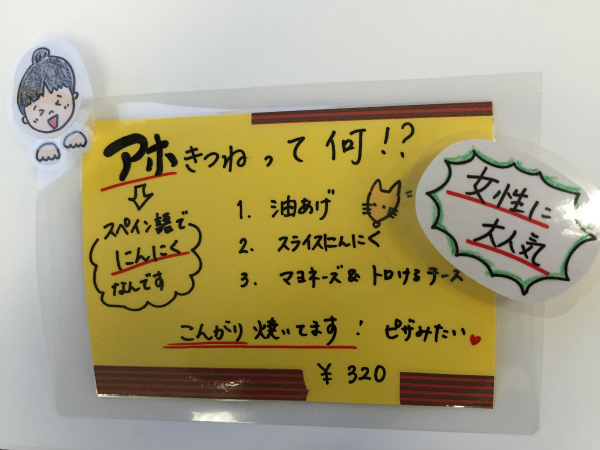 アホきつねって何!?
スペイン語で
にんにく
なんです
1. 油あげ
2. スライスにんにく
3. マヨネーズ&トロけるチーズ
女性に
大人気
こんがり焼いてます! ピザみたい
¥320